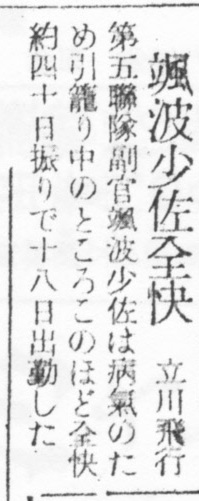 颯波少佐全快　立川飛行
第五聯隊副官颯波少佐は病氣のた
め引籠り中のところこのほど全快
約四十日振りで十八日出勤した